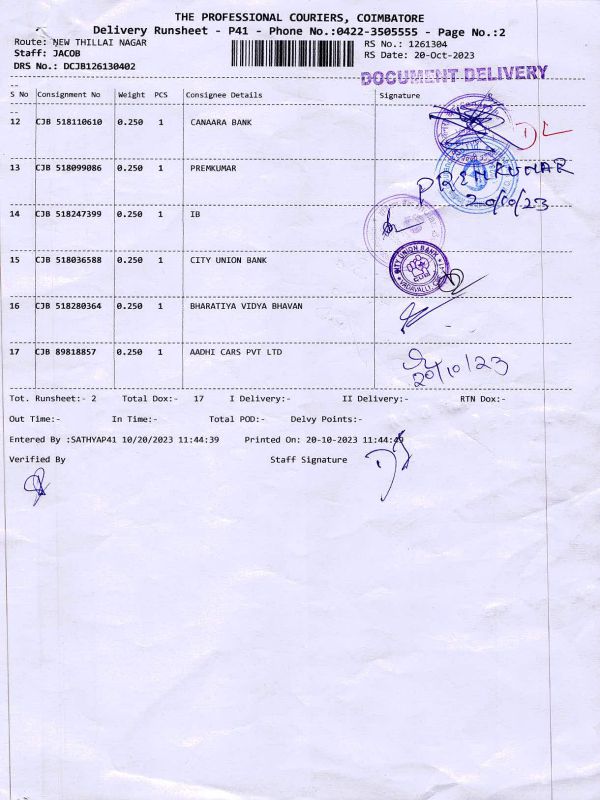 THE PROFESSIONAL COURIERS, COIMBATORE
Delivery Runsheet - P41 - Phone No.:0422-3505555 - Page No.:2
Route: NEW THILLAI NAGAR RS No.: 1261304
Staff: JACOB RS Date: 20-Oct-2023
DRS No.: DCJB126130402
DOCUMENT DELIVERY
S No Consignment No Weight PCS Consignee Details Signature
12 CJB 518110610 0.250 1 CANAARA BANK
13 CJB 518099086 0.250 1 PREMKUMAR PREMKUMAR
20/10/23
14 CJB 518247399 0.250 1 IB
15 CJB 518036588 0.250 1 CITY UNION BANK
CITY UNION BANK
CUB
VADAVALLI
16 CJB 518280364 0.250 1 BHARATIYA VIDYA BHAVAN
17 CJB 89818857 0.250 1 AADHI CARS PVT LTD
20/10/23
Tot. Runsheet:- 2 Total Dox:- 17 I Delivery:- II Delivery:- RTN Dox:-
Out Time:- In Time:- Total POD:- Delvy Points:-
Entered By :SATHYAP41 10/20/2023 11:44:39 Printed On: 20-10-2023 11:44:49
Verified By Staff Signature